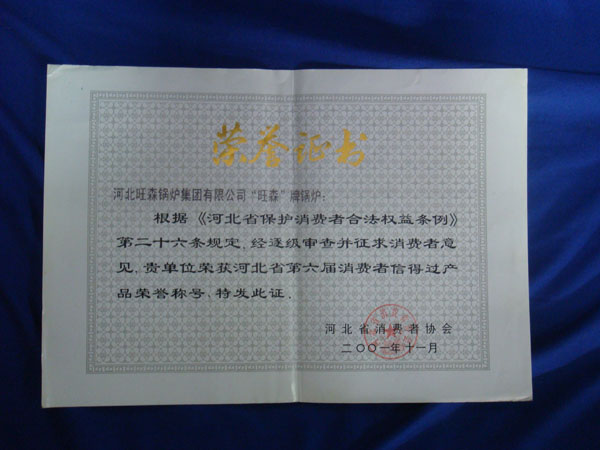 荣誉证书
河北旺森锅炉集团有限公司“旺森”牌锅炉：
根据《河北省保护消费者合法权益条例》
第二十六条规定，经逐级审查并征求消费者意
见，贵单位荣获河北省第六届消费者信得过产
品荣誉称号，特发此证。
河北省消费者协会
二〇〇一年十一月